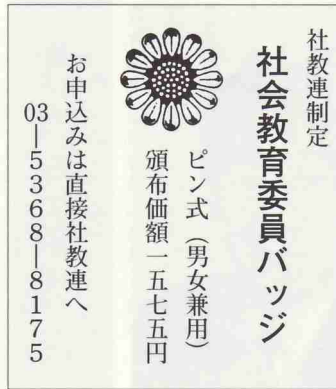 社教連制定
社会教育委員バッジ
ピン式（男女兼用）
頒布価額一五七五円
お申込みは直接社教連へ
03―5368―8175